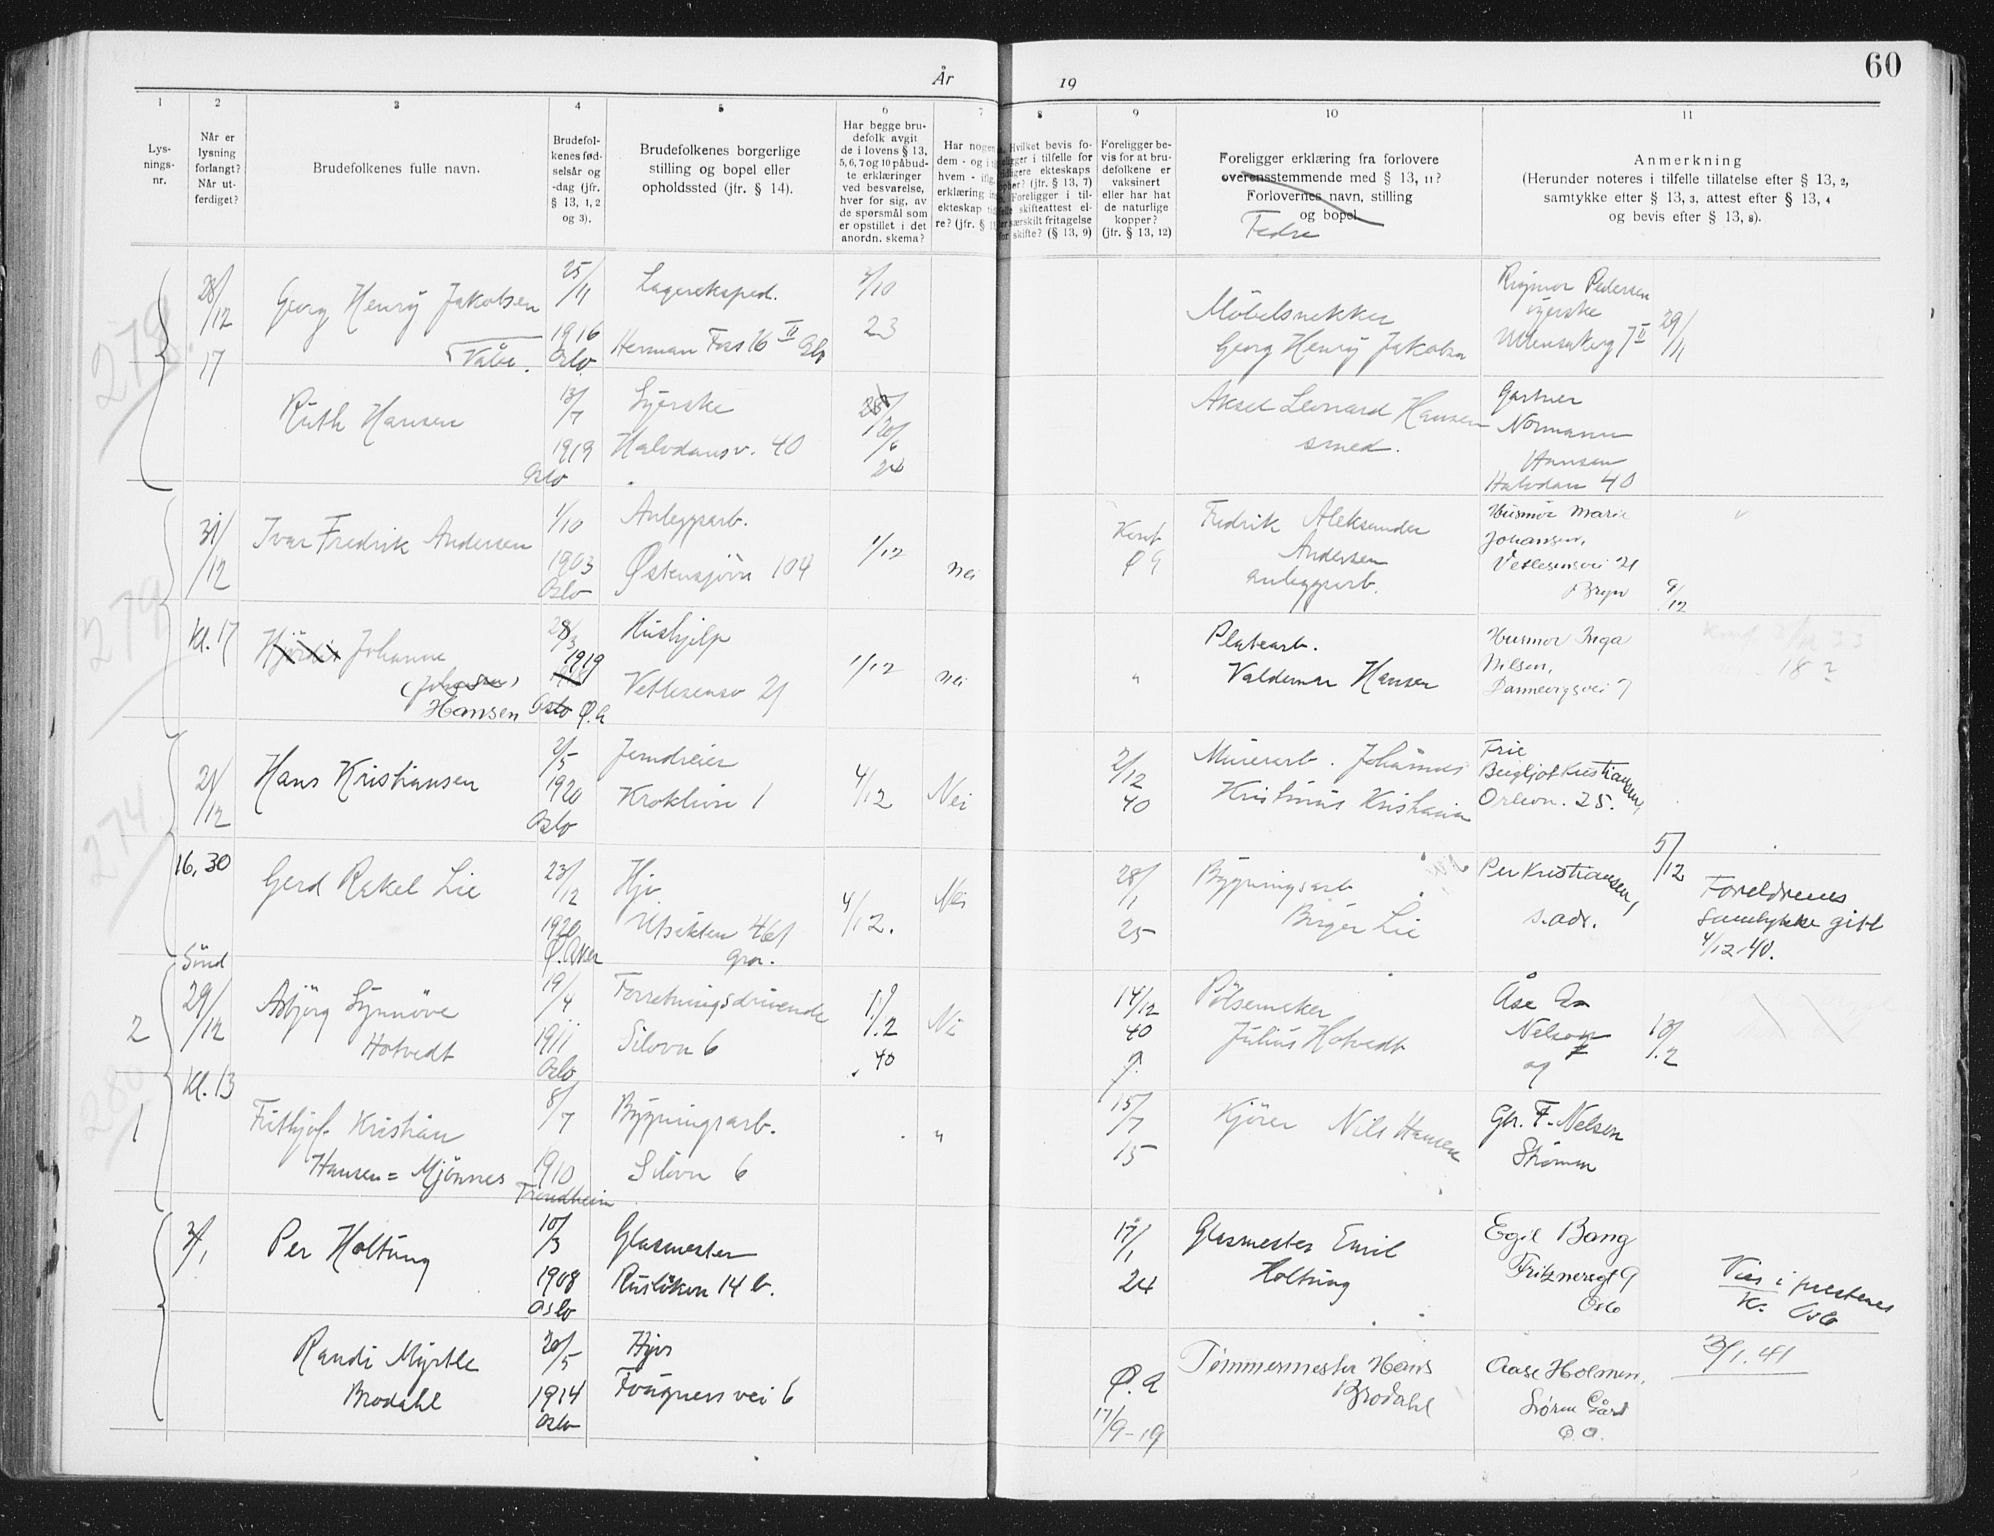 60
År
19
1
2
3
4
5
6
7
8
9
10
11
Lys-
nings-
nr.
Når er
lysning
forlangt?
Når ut-
ferdiget?
Brudefolkenes fulle navn.
Brudefol-
kenes fød-
selsår og
-dag (jfr.
§ 13, 1, 2
og 3).
Brudefolkenes borgerlige
stilling og bopel eller
opholdssted (jfr. § 14).
Har begge bru-
defolk avgit
de i lovens § 13,
5, 6, 7 og 10 påbud-
te erklæringer
ved besvarelse,
hver for sig, av
de spørsmål som
er opstillet i det
anordn. skema?
Har nogen
dem - og i
hvem - ifl.
erklæring
ekteskap
re? (jfr. §
Hvilket bevis fo-
ligger i tilfelle for
ekteskaps
(jfr. § 13, 7)
Foreligger i til-
skifteattest el-
særskilt fritagelse
for skifte? (§ 13, 9)
Foreligger be-
vis for at bru-
defolkene er
vaksinert
eller har hat
de naturlige
kopper?
(jfr. § 13, 12)
Foreligger erklæring fra forlovere
overensstemmende med § 13, 11?
Forlovernes navn, stilling
og bopel
Fedre
Anmerkning
(Herunder noteres i tilfelle tillatelse efter § 13, 2,
samtykke efter § 13, 3, attest efter § 13, 4
og bevis efter § 13, 8).
278.
28/12
17
Georg Henry Jakobsen
25/11
1916
Oslo
Lagereksped.
Herman Foss 16 II Oslo
23
Møbelsnekker
Georg Henry Jakobsen
Rigmor Pedersen
syerske
29/11
Ruth Hansen
13/7
1919
Oslo
Syerske
Halvdansv. 40
20/6
24
Aksel Leonard Hansen
smed.
Gartner
Normann
Hansen
Halvdan 40
279
31/12
Kl. 17
Ivar Fredrik Andersen
1/10
1903
Oslo
Anleggsarb.
Østensjøvn 104
1/12
nei
Konf
Ø A
Fredrik Aleksander
Andersen
anleggsarb.
Husmor Marie
Johansen,
Vetlesensvei 21
Bryn
9/12
Hjørdis Johanne
(Johansen)
Hansen
28/3
1919
Oslo Ø.A
Hushjelp
Vetlesensv 21
1/12
nei
"
Platearb.
Valdemar Hansen
Husmor Inga
Nilsen,
Dannevigsvei 7
18 ?
274.
21/12
16,30
Hans Kristiansen
2/5
1920
Oslo
Jerndreier
Kroklivn 1
4/12
Nei
2/12
40
Murerarb. Johannes
Kristinus Kristiansen
Frie
Bergljot Kristiansen,
Orleon. 25.
5/12
Gerd Rakel Lie
23/12
1920
Ø. Aker
Hjv.
Utsikten 461
Gror.
4/12.
Nei
28/1
25
Bygningsarb
Birger Lie
Per Kristiansen,
s. adr.
Foreldrenes
samtykke gitt
4/12.40.
280
2
Sønd
29/12
Kl. 13
Asbjørg Synnøve
Hotvedt
19/4
1911
Oslo
Forretningsdrivende
Silovn 6
40
Nei
14/12
40
Pølsemaker
Julius Hotvedt
Åse
Nelson
og
13/12
1
Fritjof Kristian
Hansen = Mjønnes
8/7
1910
Trondheim
Bygningsarb.
Silovn 6
"
15/7
15
Kjører Nils Hansen
Gbr. F. Nelson
Strømmen
3/1
Per Holtung
10/3
1908
Oslo
Glasmester
Rusløkkvn 14 b.
17/1
24
Glasmester Emil
Holtung
Egil Bang
Fritznersgt 9
Oslo
Vies i prestenes
k. Oslo
3/1.41
Randi Myrtle
Brodahl
20/5
1914
Oslo
Hjv
Fougners vei 6
Ø. A
17/9-19
Tømmermester Hans
Brodahl
Aase Holmen,
Søren Gård
Ø. A.